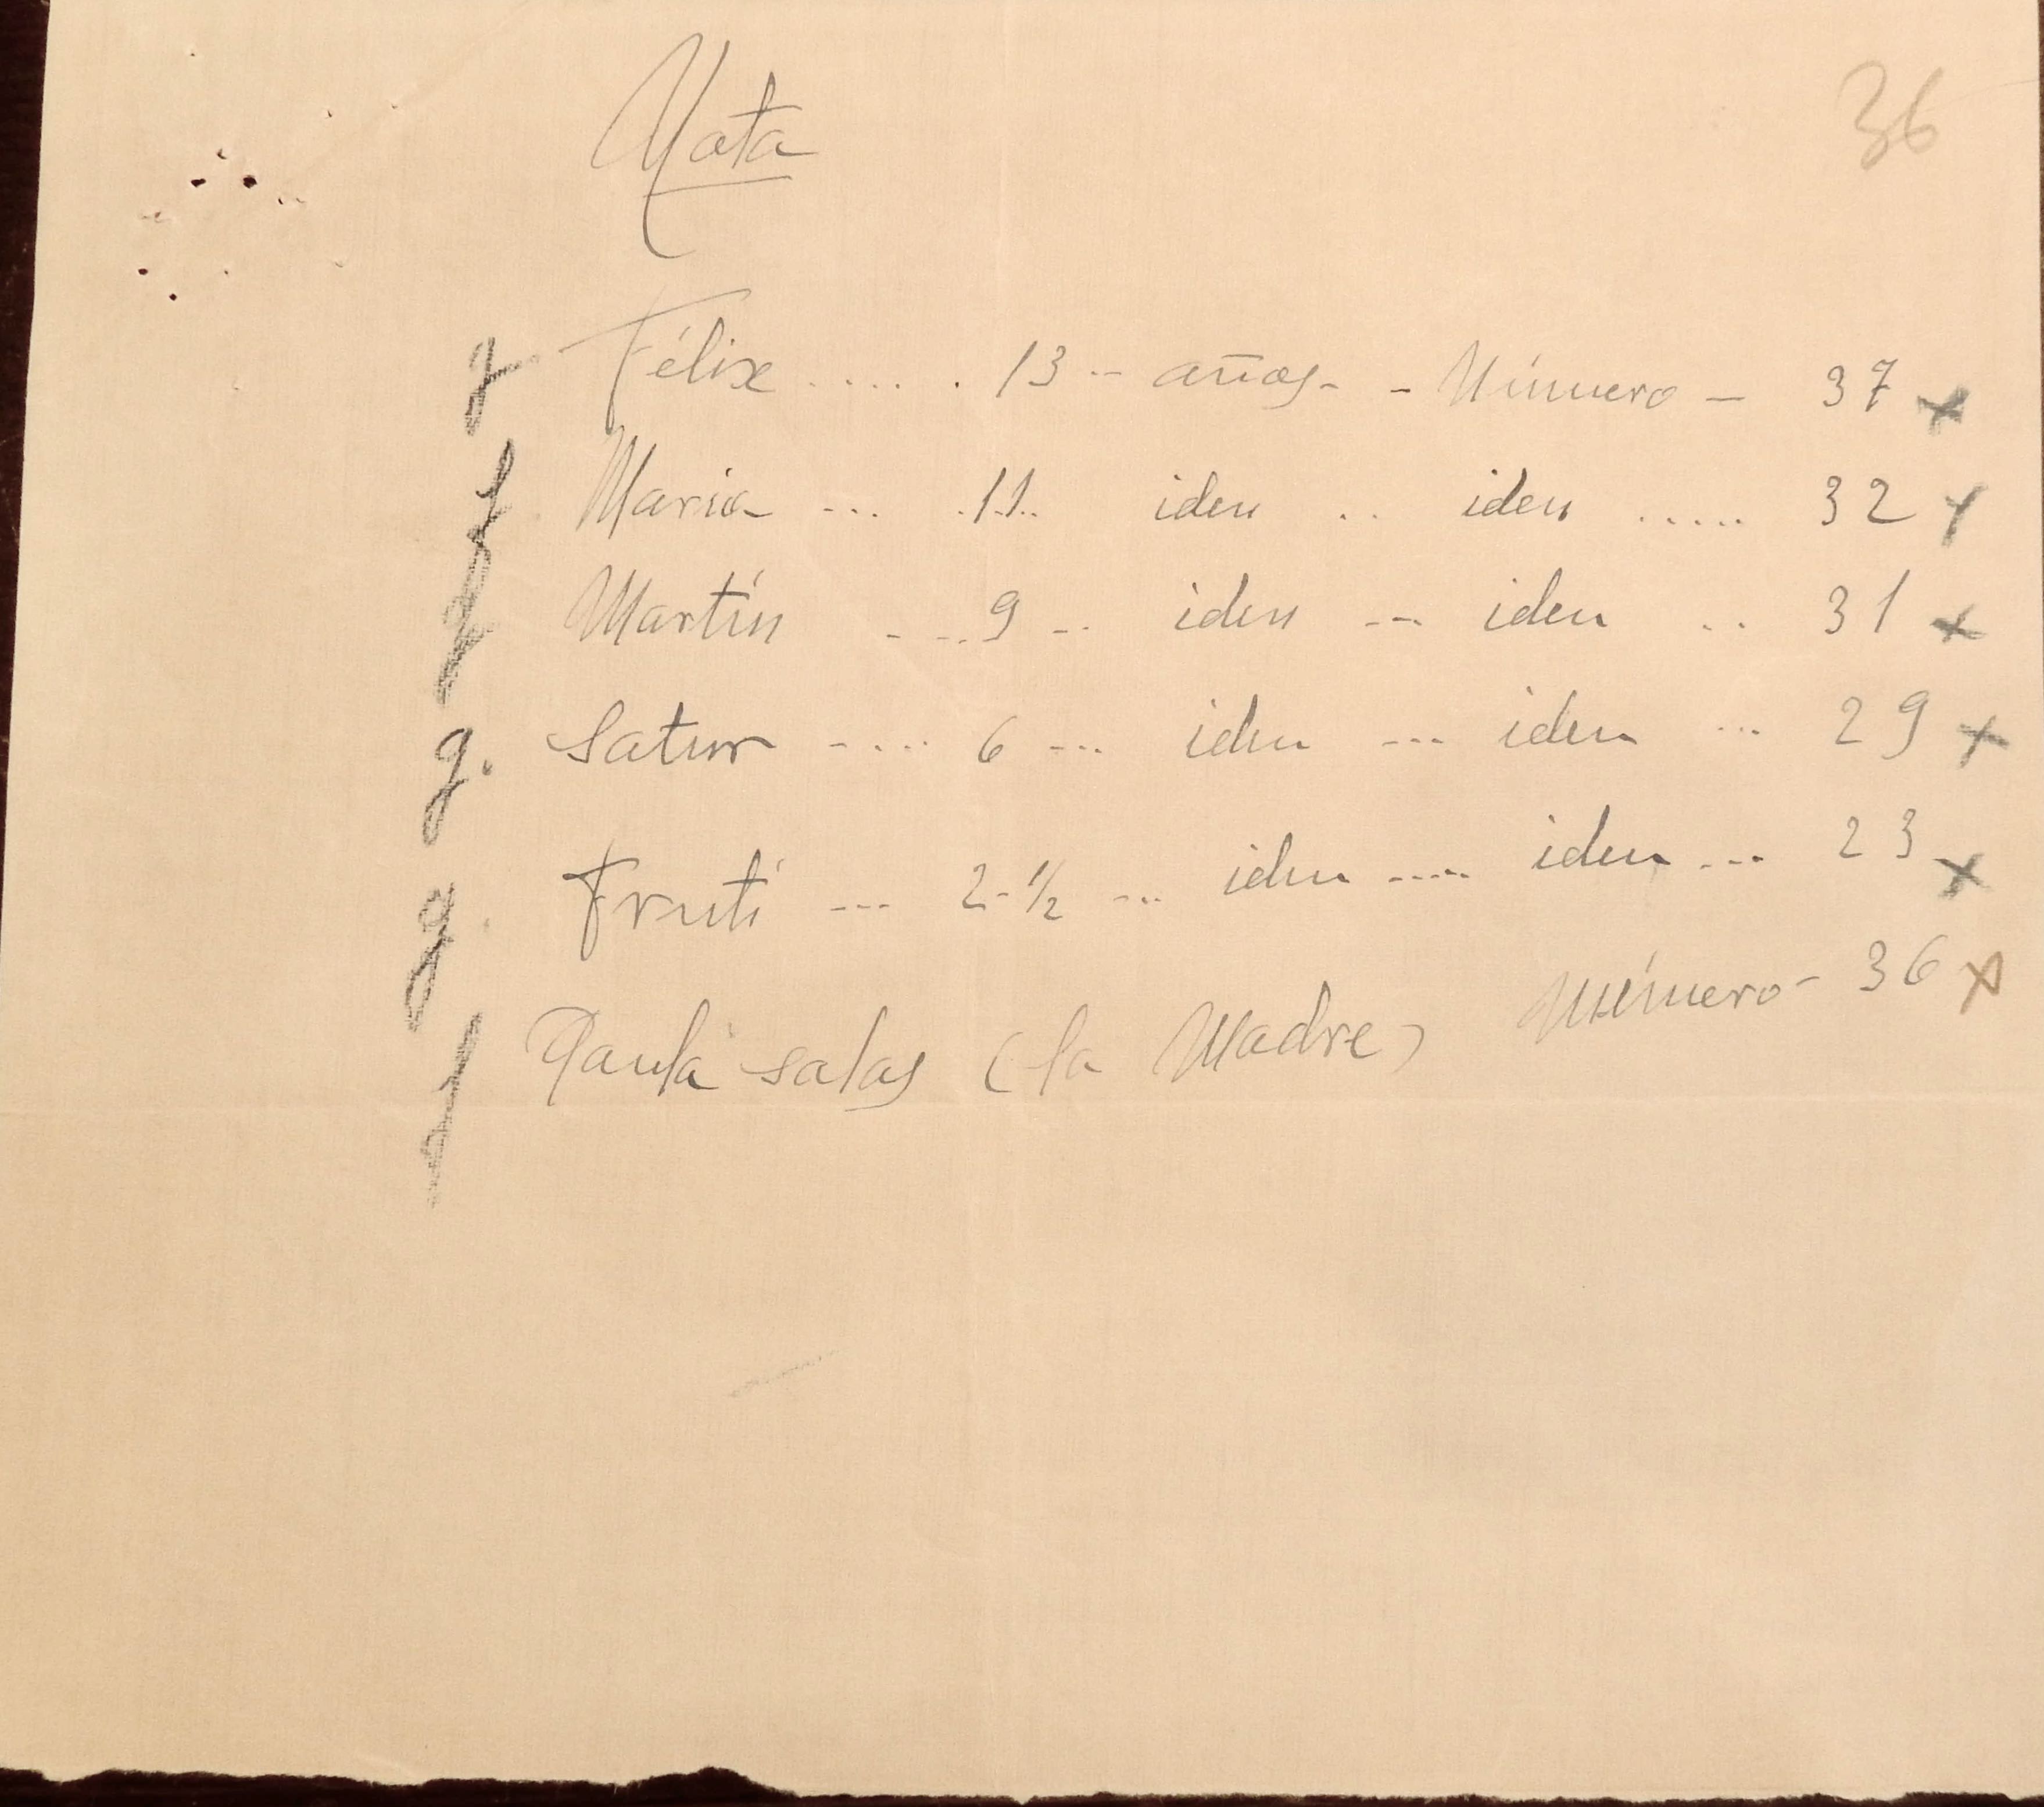 Nota
36
Félix ..... 13 -- años - - Número - 37 x
Maria ... 11 iden .. iden ..... 32 x
Martín ... 9 .. iden --- iden .. 31 x
g. Satur ---- 6 --- iden --- iden ... 29 x
g. Fruti --- 2-1/2 ... iden ..... iden ... 23 x
Paula salas (la Madre) Número - 36 x